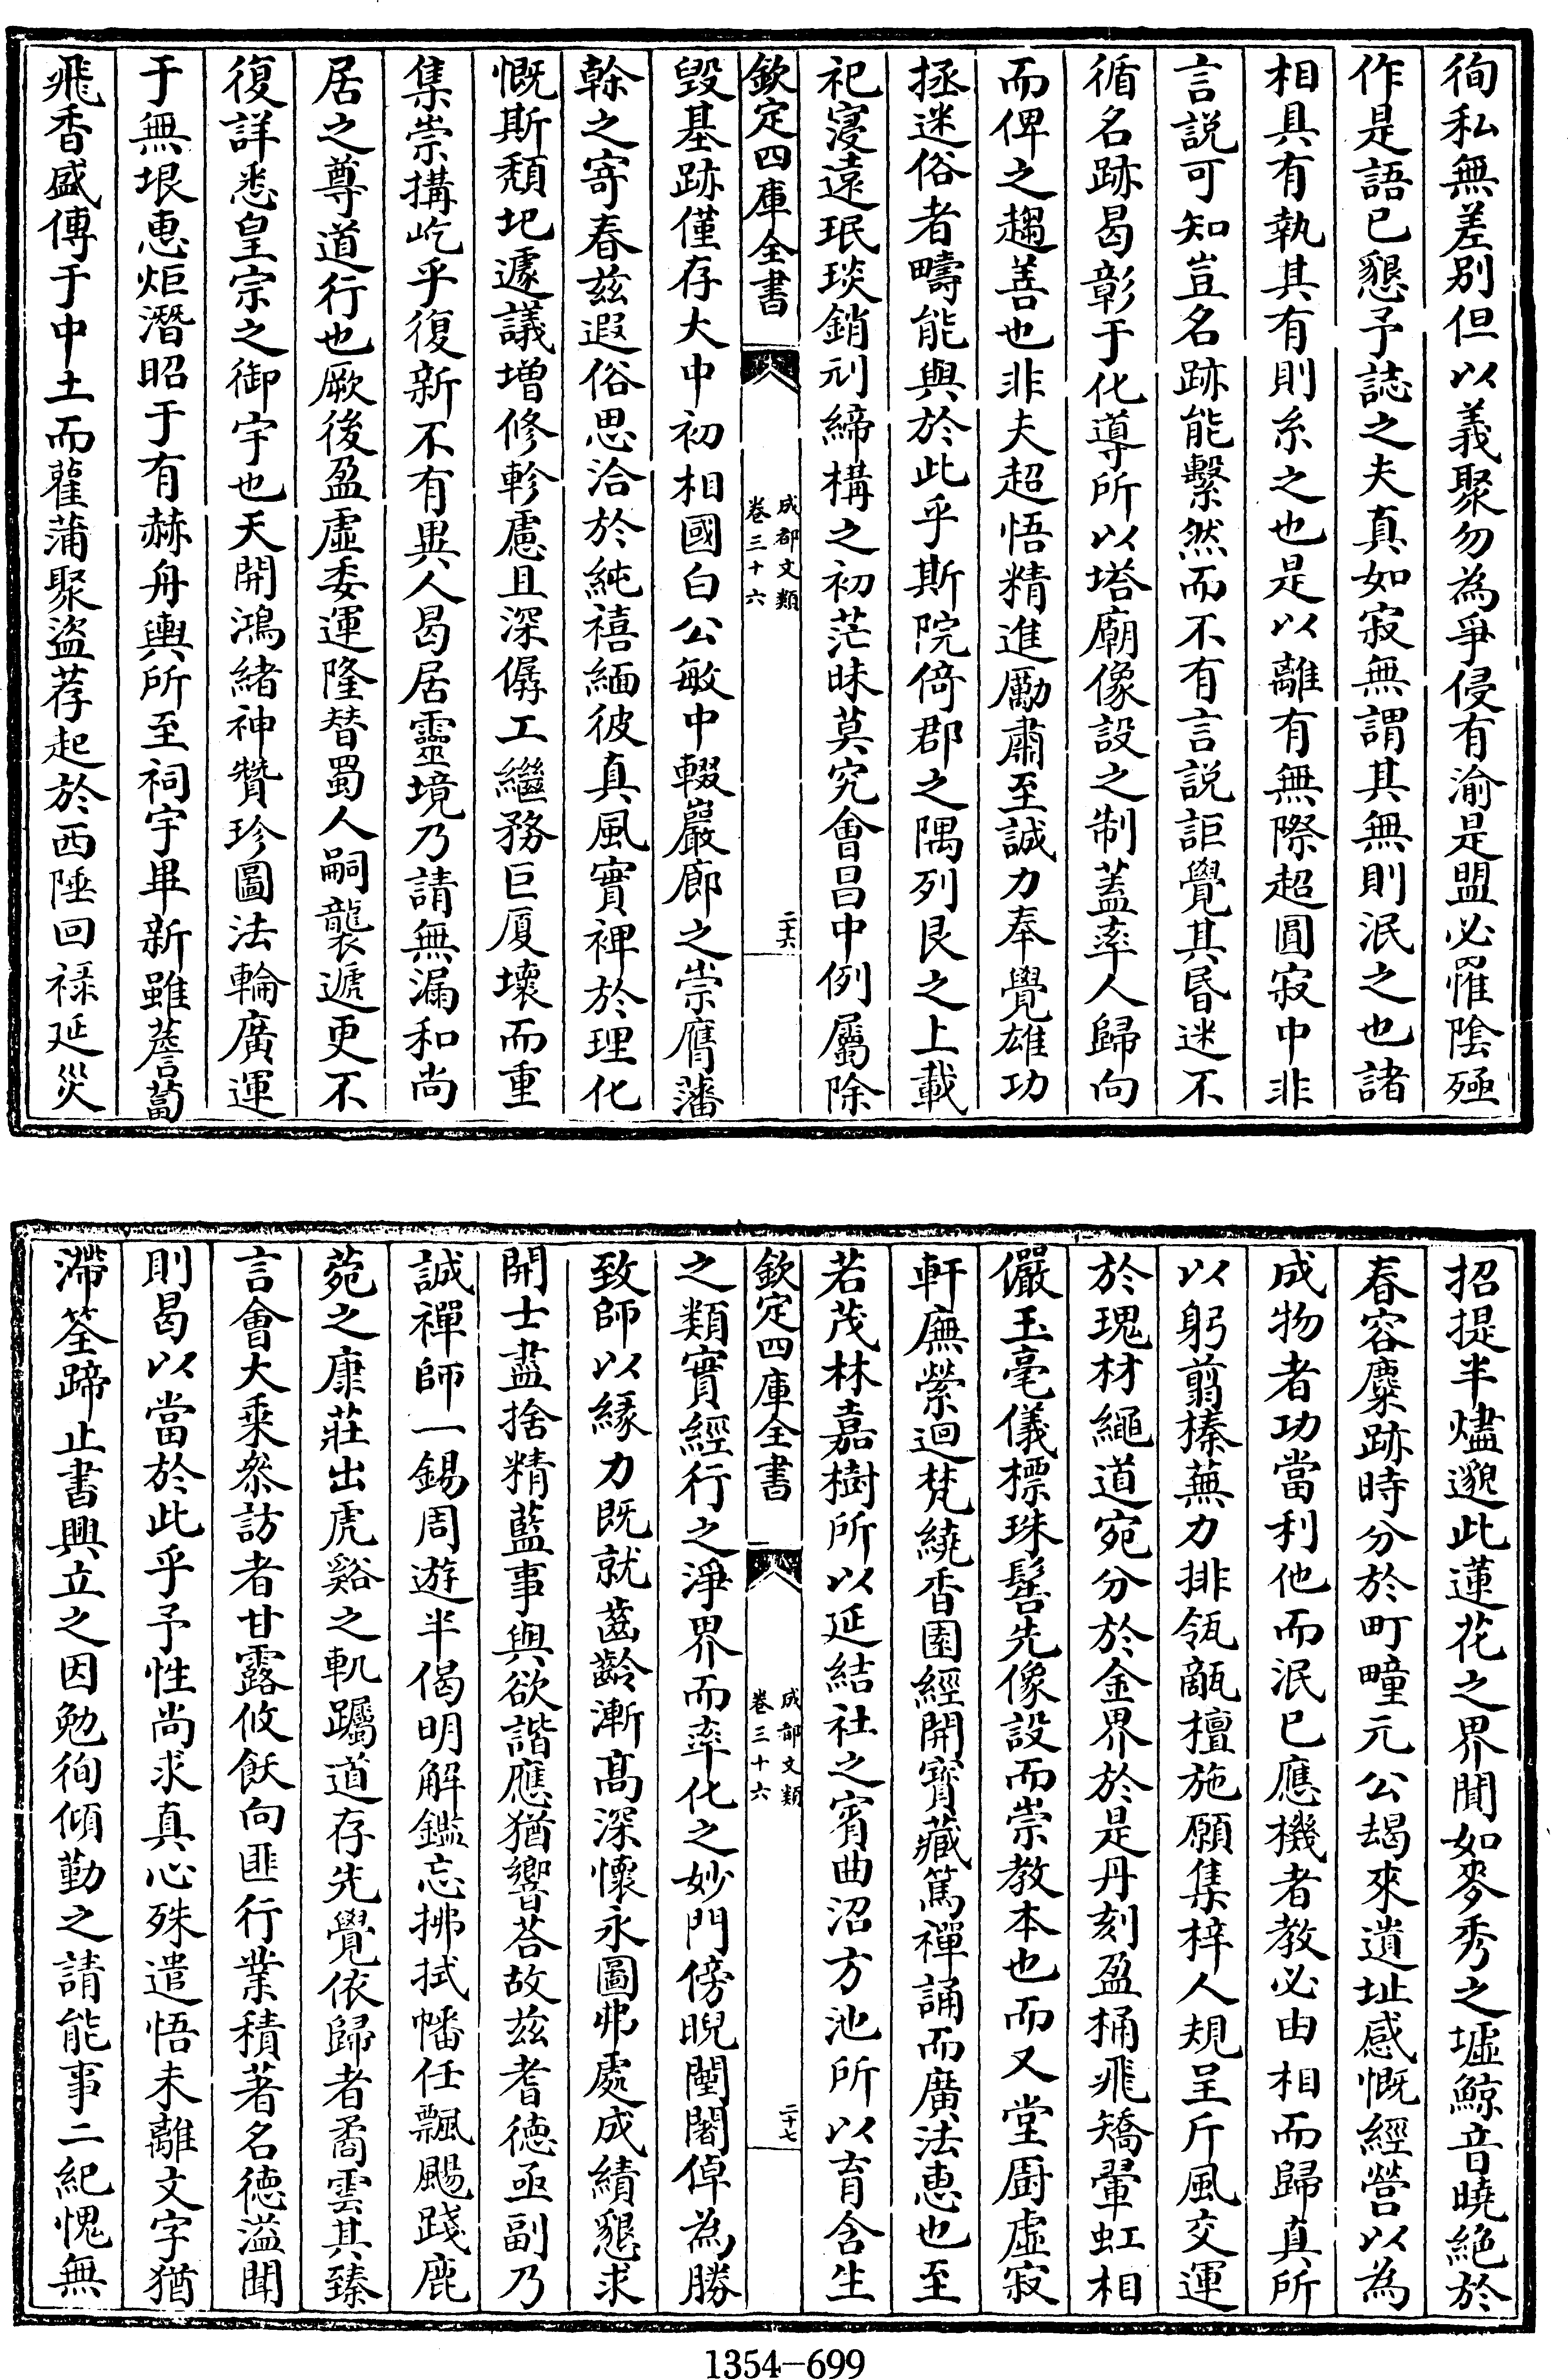 徇私無差別但以義聚勿為爭侵有渝是盟必罹陰殛
作是語已懇予誌之夫真如寂無謂其無則泯之也諸
相具有執其有則系之也是以離有無際超圓寂中非
言説可知豈名跡能繫然而不有言説詎覺其昏迷不
循名跡曷彰于化導所以塔廟像設之制蓋率人歸向
而俾之趨善也非夫超悟精進勵肅至誠力奉覺雄功
拯迷俗者疇能與於此乎斯院倚郡之隅列艮之上載
祀寖遠珉琰銷刓締構之初茫昧莫究會昌中例屬除
欽定四庫全書
成都文類
卷三十六
二十六
毀基跡僅存大中初相國白公敏中輟巖廊之崇膺藩
榦之寄春兹遐俗思洽於純禧緬彼真風實裨於理化
慨斯頹圮遽議増修軫慮且深僝工繼務巨厦壞而重
集崇搆屹乎復新不有異人曷居靈境乃請無漏和尚
居之尊道行也厥後盈虛委運隆替蜀人嗣襲遞更不
復詳悉皇宗之御宇也天開鴻緒神贊珍圖法輪廣運
于無垠惠炬潛昭于有赫舟輿所至祠宇畢新雖薝蔔
飛香盛傳于中土而雚蒲聚盜荐起於西陲回禄延災
招提半燼邈此蓮花之界聞如麥秀之墟鯨音曉絶於
春容麋跡時分於町疃元公朅來遺址感慨經營以為
成物者功當利他而泯已應機者教必由相而歸真所
以躬翦榛蕪力排瓴甋檀施願集梓人規呈斤風交運
於瑰材繩道宛分於金界於是丹刻盈桷飛矯翬虹相
儼玉毫儀標珠髻先像設而崇教本也而又堂厨虛寂
軒廡縈迴梵繞香園經開寳藏篤禪誦而廣法惠也至
若茂林嘉樹所以延結社之賓曲沼方池所以育含生
欽定四庫全書
成都文類
卷三十六
二十七
之類實經行之淨界而率化之妙門傍睨闉闍倬為勝
致師以縁力既就齒齡漸高深懷永圖弗處成績懇求
開士盡捨精藍事與欲諧應猶響荅故兹耆徳亟副乃
誠禪師一錫周遊半偈明解鑑忘拂拭幡任飄颺踐鹿
菀之康莊出虎谿之軏躅道存先覺依歸者矞雲其臻
言會大乘叅訪者甘露攸飫向匪行業積著名徳溢聞
則曷以當於此乎予性尚求真心殊遣悟未離文字猶
滯筌蹄止書興立之因勉徇傾勤之請能事二紀愧無
1354-699